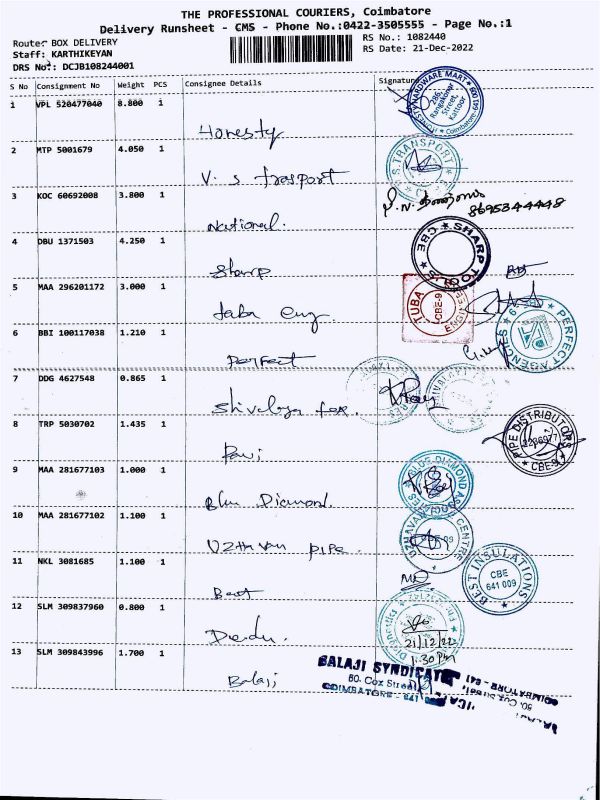 THE PROFESSIONAL COURIERS, Coimbatore
Delivery Runsheet - CMS - Phone No.:0422-3505555 - Page No.:1
Route: BOX DELIVERY
RS No.: 1082440
Staff: KARTHIKEYAN
RS Date: 21-Dec-2022
DRS No.: DCJB108244001
S No Consignment No Weight PCS Consignee Details Signature
1 VPL 520477040 8.800 1
Honesty
HARDWARE MART
286, Rangakonar Street, Kattoor
Coimbatore 641 009
2 MTP 5001679 4.050 1
V. S Trasport
V.S. TRANSPORT
3 KOC 60692008 3.800 1
National.
8695344448
4 DBU 1371503 4.250 1
Sharp
SHARP TOOLS CBE
5 MAA 296201172 3.000 1
Taba Eng.
TUBA
CBE-9
6 BBI 100117038 1.210 1
Perfect
PERFECT AGENCIES
7 DDG 4627548 0.865 1
Shivalaya
8 TRP 5030702 1.435 1
PIPE DISTRIBUTORS
2236977
CBE-9
9 MAA 281677103 1.000 1
Blue Diamond.
BLUE DIAMOND ASSOCIATES
10 MAA 281677102 1.100 1
Uzhavan pipe.
UZHAVAN CENTRE
11 NKL 3081685 1.100 1
Best
BEST INSULATIONS
CBE
641 009
12 SLM 309837960 0.800 1
21/12/22
1.30 PM
13 SLM 309843996 1.700 1
Balaji
BALAJI SYNDICATE
80. Cox Street
COIMBATORE - 641